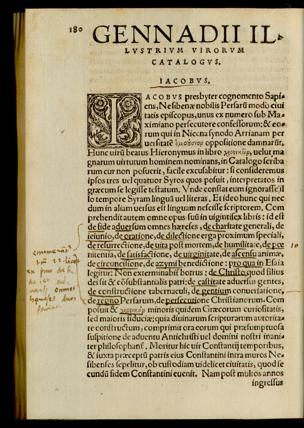 180
GENNADII IL-
LVSTRIVM VIRORVM
CATALOGVS.
IACOBVS.
IACOBVS presbyter cognomento Sapi-
ens, Nesibenæ nobilis Persarũ modò ciui
tatis episcopus, unus ex numero sub Ma
ximiano persecutore confessorum: & eo
rum qui in Nicæna synodo Arrianam per
uersitatẽ oppositione damnarũt.
Hunc uirũ beatus Hieronymus in libro uelut ma
gnarum uirtutum hominem nominans, in Catalogo scriba
rum cur non posuerit, facile excusabitur: si consideremus
ipsos tres uel quatuor Syros quos posuit, interpretatos in
græcum se legisse testatum. Vnde constat eum ignorasse il
lo tempore Syram linguã uel literas, & ideo hunc qui nec
dum in aliam uersus est linguam nescisse scriptorem. Com
prehendit autem omne opus suũ in uigintisex libris: id est
de fide: aduersum omnes hæreses: de charitate generali, de
ieiunio, de oratione, de dilectione erga proximum speciali,
de resurrectione, de uita post mortem, de humilitate, de pœ
nitentia, de satisfactione, de uirginitate, de sensu animæ,
de circuncisione, de azymi benedictione: pro qua in Esaia
legitur: Non exterminabit botrus: de Christo quod filius
dei sit & cõsubstantialis patri: de castitate aduersus gentes,
de constructione tabernaculi, de gentium conuersatione,
de regno Persarum, de persecutione Christianorum. Com
posuit & minoris quidem Græcorum curiositatis,
sed maioris fiduciæ: quia diuinarum scripturarum autorita-
te constructum, comprimit ora eorum qui præsumptuosa
suspitione de aduentu Antichristi uel domini nostri inaniter
philosophantur. Moritur hic uir Constantij temporibus,
& iuxta præceptũ patris eius Constantini intra muros Ne-
sibenæ sepelitur, ob custodiam uidelicet ciuitatis, quod se
cundũm fidem Constantini euenit. Nam post multos annos
ingressus